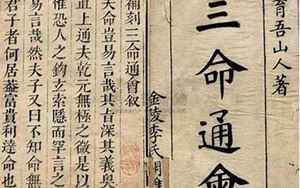 育吾山人著
三命通會
金陵李氏
補刻三命通會敘
天命豈易言哉其旨深其義奧
直上通夫乾元無極之微是以
惟恐人之鉤玄索隱而罕言之
易言哉然夫子又曰不知命無
君子者何居蓋富貴利達命也